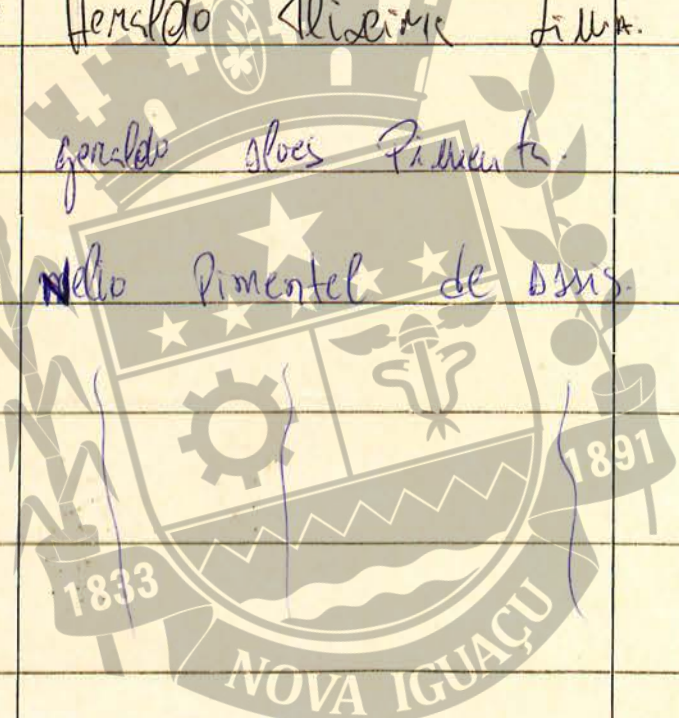 Heraldo Lima.
Geraldo Alves Pimenta.
Nelio Pimentel de Assis.
1891
1833
NOVA IGUAÇU